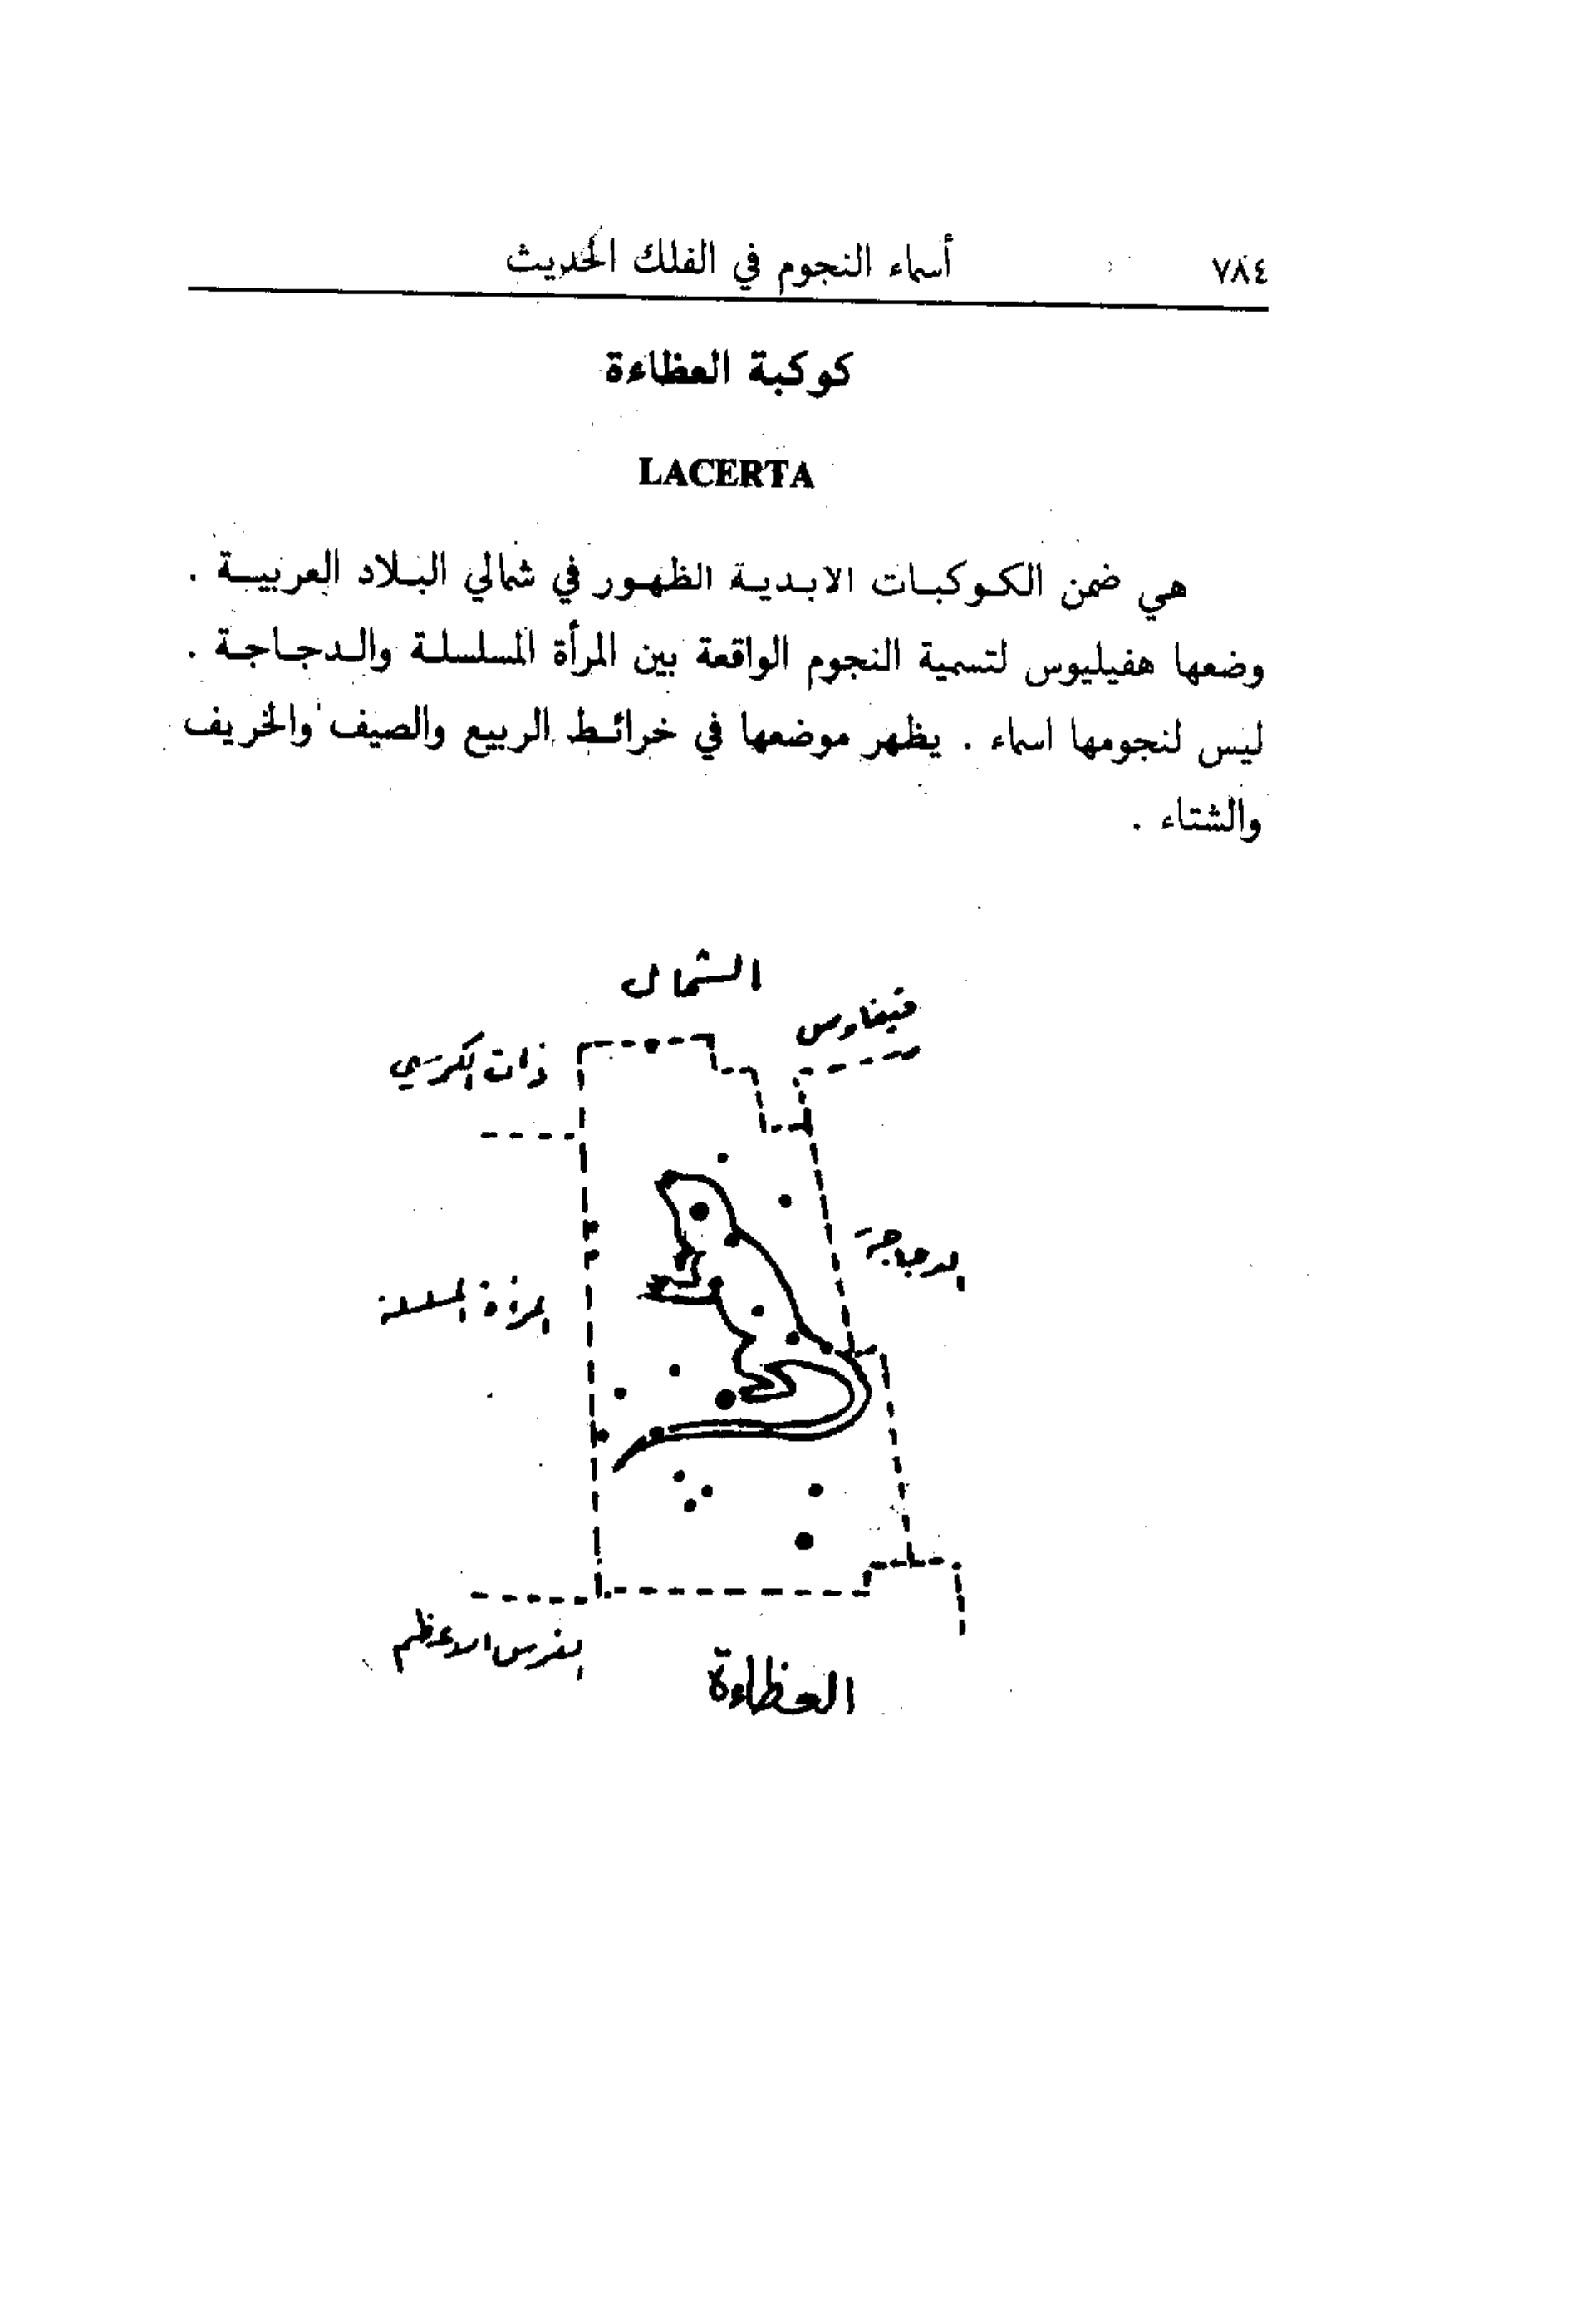 ٧٨٤
أسماء النجوم في الفلك الحديث
كوكبة العظاءة
LACERTA
هي ضمن الكوكبات الابدية الظهور في شمالي البلاد العربية .
وضعها هفيليوس لتسمية النجوم الواقعة بين المرأة المسلسلة والدجاجة .
ليس لنجومها اسماء . يظهر موضعها في خرائط الربيع والصيف والخريف
والشتاء .
الشمال
قيفاوس
ذات الكرسي
الدجاجة
المرأة المسلسلة
الفرس الاعظم
العظاءة